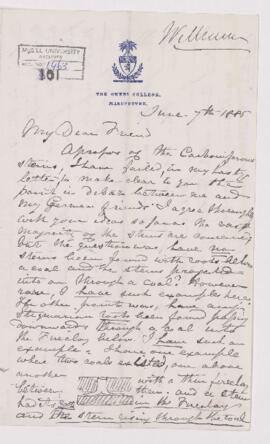 Williamson
McGILL UNIVERSITY
ARCHIVES
ACC. NO. 1463
101
THE OWENS COLLEGE,
MANCHESTER.
June 7th 1885
My Dear Friend
Apropos of the Carboniferous
stems, I have failed, in my hasty
letter, to make clear to you the
point in debate between me and
my German friends. I agree thoroughly
with your ideas so far as the vast
majority of the stems are concerned
but the question was, have any
stems been found with roots below
a coal and the stems projected
into or through a coal? However
rare, I have such examples here.
The other point was, have
Stigmarian roots been found passing
downwards through a coal into
the fireclay below. I have such an
example. I have one example
where two coals existed, one above
another with a thin fireclay
between, and a stem
had its in the fireclay
and the stem rising through the